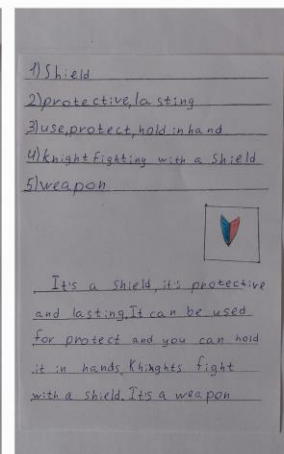 1) Shield
2) protective, lasting
3) use, protect, hold in hand
4) knight fighting with a shield
5) weapon
It's a shield, it's protective
and lasting. It can be used
for protect and you can hold
it in hands. Knights fight
with a shield. It's a weapon